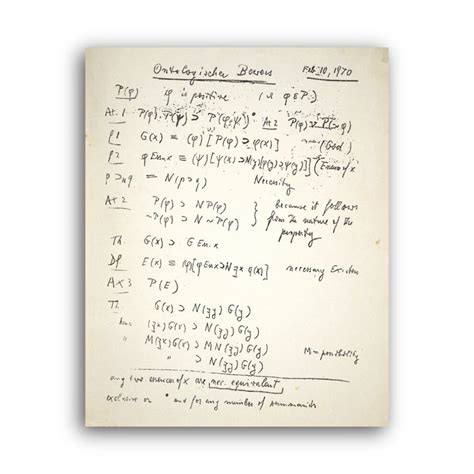 Ontologischer Beweis Feb. 10, 1970
P(φ) φ is positive (or φ∈P.)
At. 1 P(φ).P(ψ) ⊃ P(φ.ψ)¹ At 2 P(φ) ∨ P(~φ)
P1 G(x) ≡ (φ)[P(φ) ⊃ φ(x)] (God)
P2 φ Ess.x ≡ (ψ)[ψ(x) ⊃ N(y)[φ(y) ⊃ ψ(y)]] (Essence of x)
p ⊃N q = N(p ⊃ q) Necessity
At 2 P(φ) ⊃ NP(φ) } because it follows
~P(φ) ⊃ N~P(φ) } from the nature of the
property
Th. G(x) ⊃ G Ess.x
Df. E(x) ≡ (φ)[φ Ess x ⊃ N ∃x φ(x)] necessary Existence
Ax 3 P(E)
Th. G(x) ⊃ N(∃y) G(y)
hence (∃x) G(x) ⊃ N(∃y) G(y)
" M(∃x) G(x) ⊃ MN(∃y) G(y)
" ⊃ N(∃y) G(y) M = possibility
any two essences of x are nec. equivalent
exclusive or * and for any number of summands